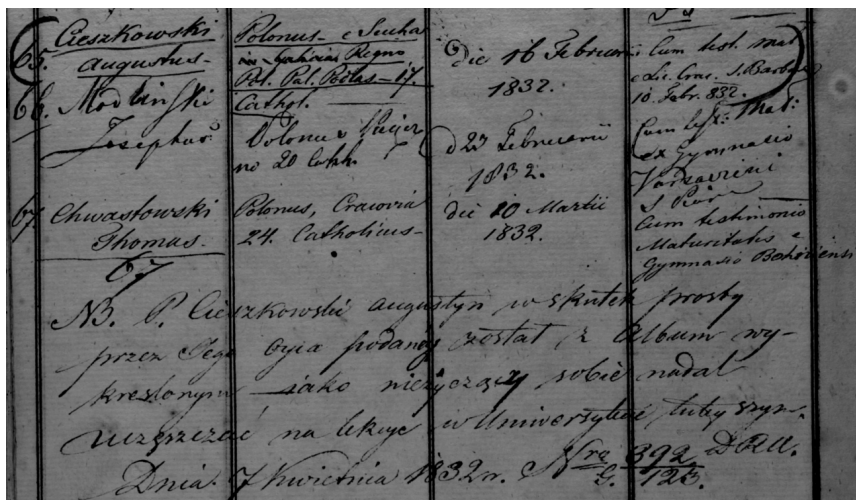 65. Cieszkowski Augustus. Polonus e Sucha in Galiciae Regno Pol. Pal. Podlas. 17. Cathol. die 16 Februarii 1832. Cum test. mat. e Lic. Crac. S. Barbar. 10. Febr. 832.
66. Modliński Josephus Polonus 20 Cath. d 23 Februarii 1832. Cum test: Mat: ex Gymnasio Varsaviensi S Piar
67. Chwastowski Thomas. Polonus, Cracovia 24. Catholicus die 10 Martii 1832. Cum testimonio Maturitatis e Gymnasio Bochniensi
67
NB. P. Cieszkowski Augustyn w skutek prosby
przez Jego Oyca podanéj został z Album wy-
kreślonym jako nieżyczący sobie nadal
uczęszczać na lekcye w Uniwersytecie tutejszym.
Dnia 7 Kwietnia 1832 r. Nro 392 D.R.U.
G. 123.